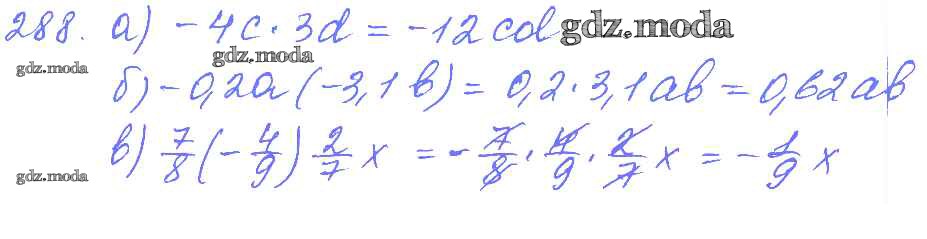 288. а) -4c · 3d = -12cd gdz.moda
gdz.moda
gdz.moda б) -0,2a (-3,1b) = 0,2 · 3,1ab = 0,62ab
в) 7/8 (-4/9) 2/7 x = -7/8 · 4/9 · 2/7 x = -1/9 x
gdz.moda